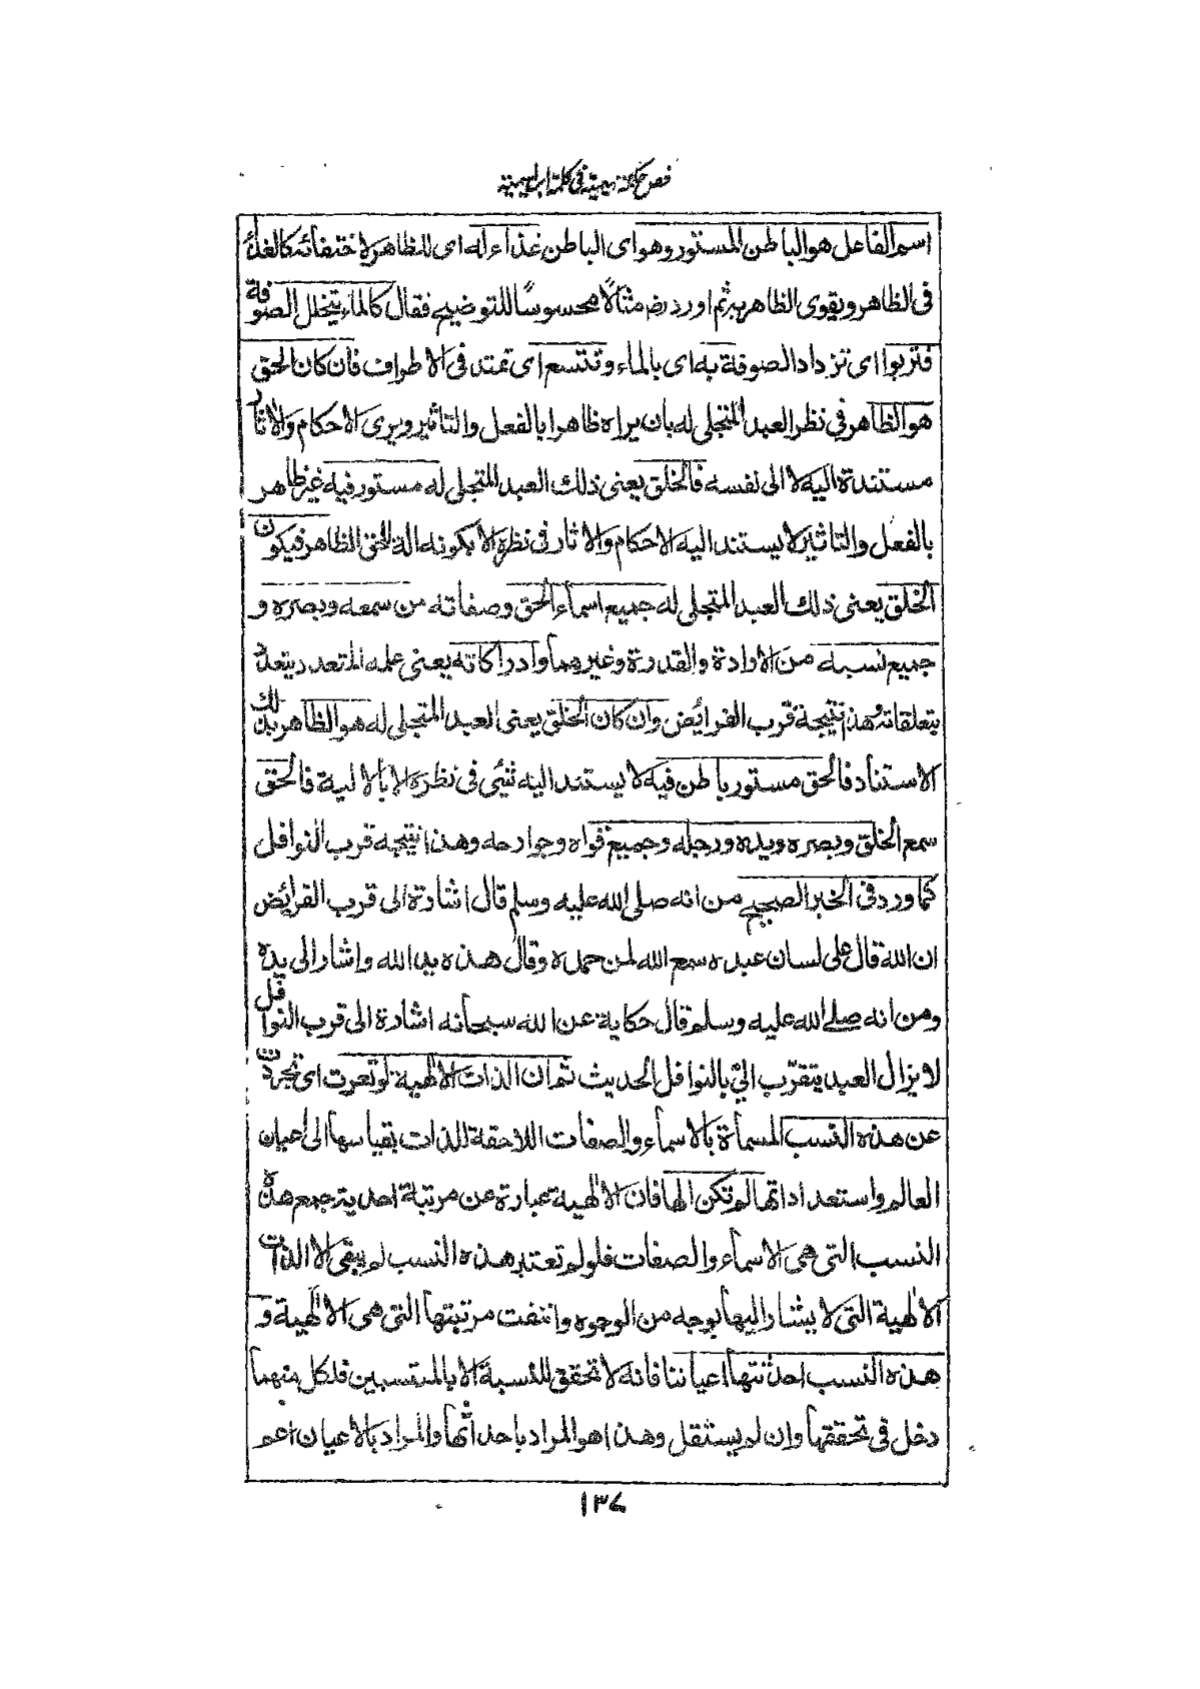 فص حكمة مهيمية في كلمة ابراهيمية
اسم الفاعل هو الباطن المستور وهو اى الباطن غذاء له اى للظاهر لاختفائه كالغذاء
فى الظاهر ويقوى الظاهر به ثم اورد رضـ مثالا محسوسًا للتوضيح فقال كالماء يتخلل الصوفة
فتربوا اى تزداد الصوفة به اى بالماء وتتسع اى تمتد فى الاطراف فان كان الحق
هو الظاهر فى نظر العبد المتجلى له بان يراه ظاهرا بالفعل والتاثير ويرى الاحكام والاثار
مستندة اليه لا الى نفسه فالخلق يعنى ذلك العبد المتجلى له مستور فيه غير ظاهر
بالفعل والتاثير لا يستند اليه الاحكام والاثار فى نظره الا بكونه الة للحق الظاهر فيكون
الخلق يعنى ذلك العبد المتجلى له جميع اسماء الحق وصفاته من سمعه وبصره و
جميع نسبه من الارادة والقدرة وغيرهما وادراكاته يعنى علمه المتعدد بتعدد
متعلقاته وهذا نتيجة قرب الفرائض وان كان الخلق يعنى العبد المتجلى له هو الظاهر بذلك
الاستناد فالحق مستور باطن فيه لا يستند اليه شئى فى نظره الا بالالية فالحق
سمع الخلق وبصره ويده ورجله وجميع قواه وجوارحه وهذا نتيجة قرب النوافل
كما ورد فى الخبر الصحيح من انه صلى الله عليه وسلم قال اشارة الى قرب الفرائض
ان الله قال على لسان عبده سمع الله لمن حمده وقال هذه يد الله واشار الى يده
ومن انه صلى الله عليه وسلم قال حكاية عن الله سبحانه اشارة الى قرب النوافل
لا يزال العبد يتقرّب الىّ بالنوافل الحديث ثم ان الذات الالٰهية لو تعرت اى تجردت
عن هذه النسب المسماة بالاسماء والصفات اللاحقة للذات بقياسها الى اعيان
العالم واستعداداتها لم تكن الها فان الالٰهية عبارة عن مرتبة احدية جمع هذه
النسب التى هى الاسماء والصفات فلو لم تعتبر هذه النسب لم يبق الا الذات
الالٰهية التى لا يشار اليها بوجه من الوجوه وانتفت مرتبتها التى هى الالٰهية و
هذه النسب احدثتها اعياننا فانه لا تحقق للنسبة الا بالمنتسبين فلكل منهما
دخل فى تحققها وان لم يستقل وهذا هو المراد باحداثها والمراد بالاعيان اعم
١٣٧